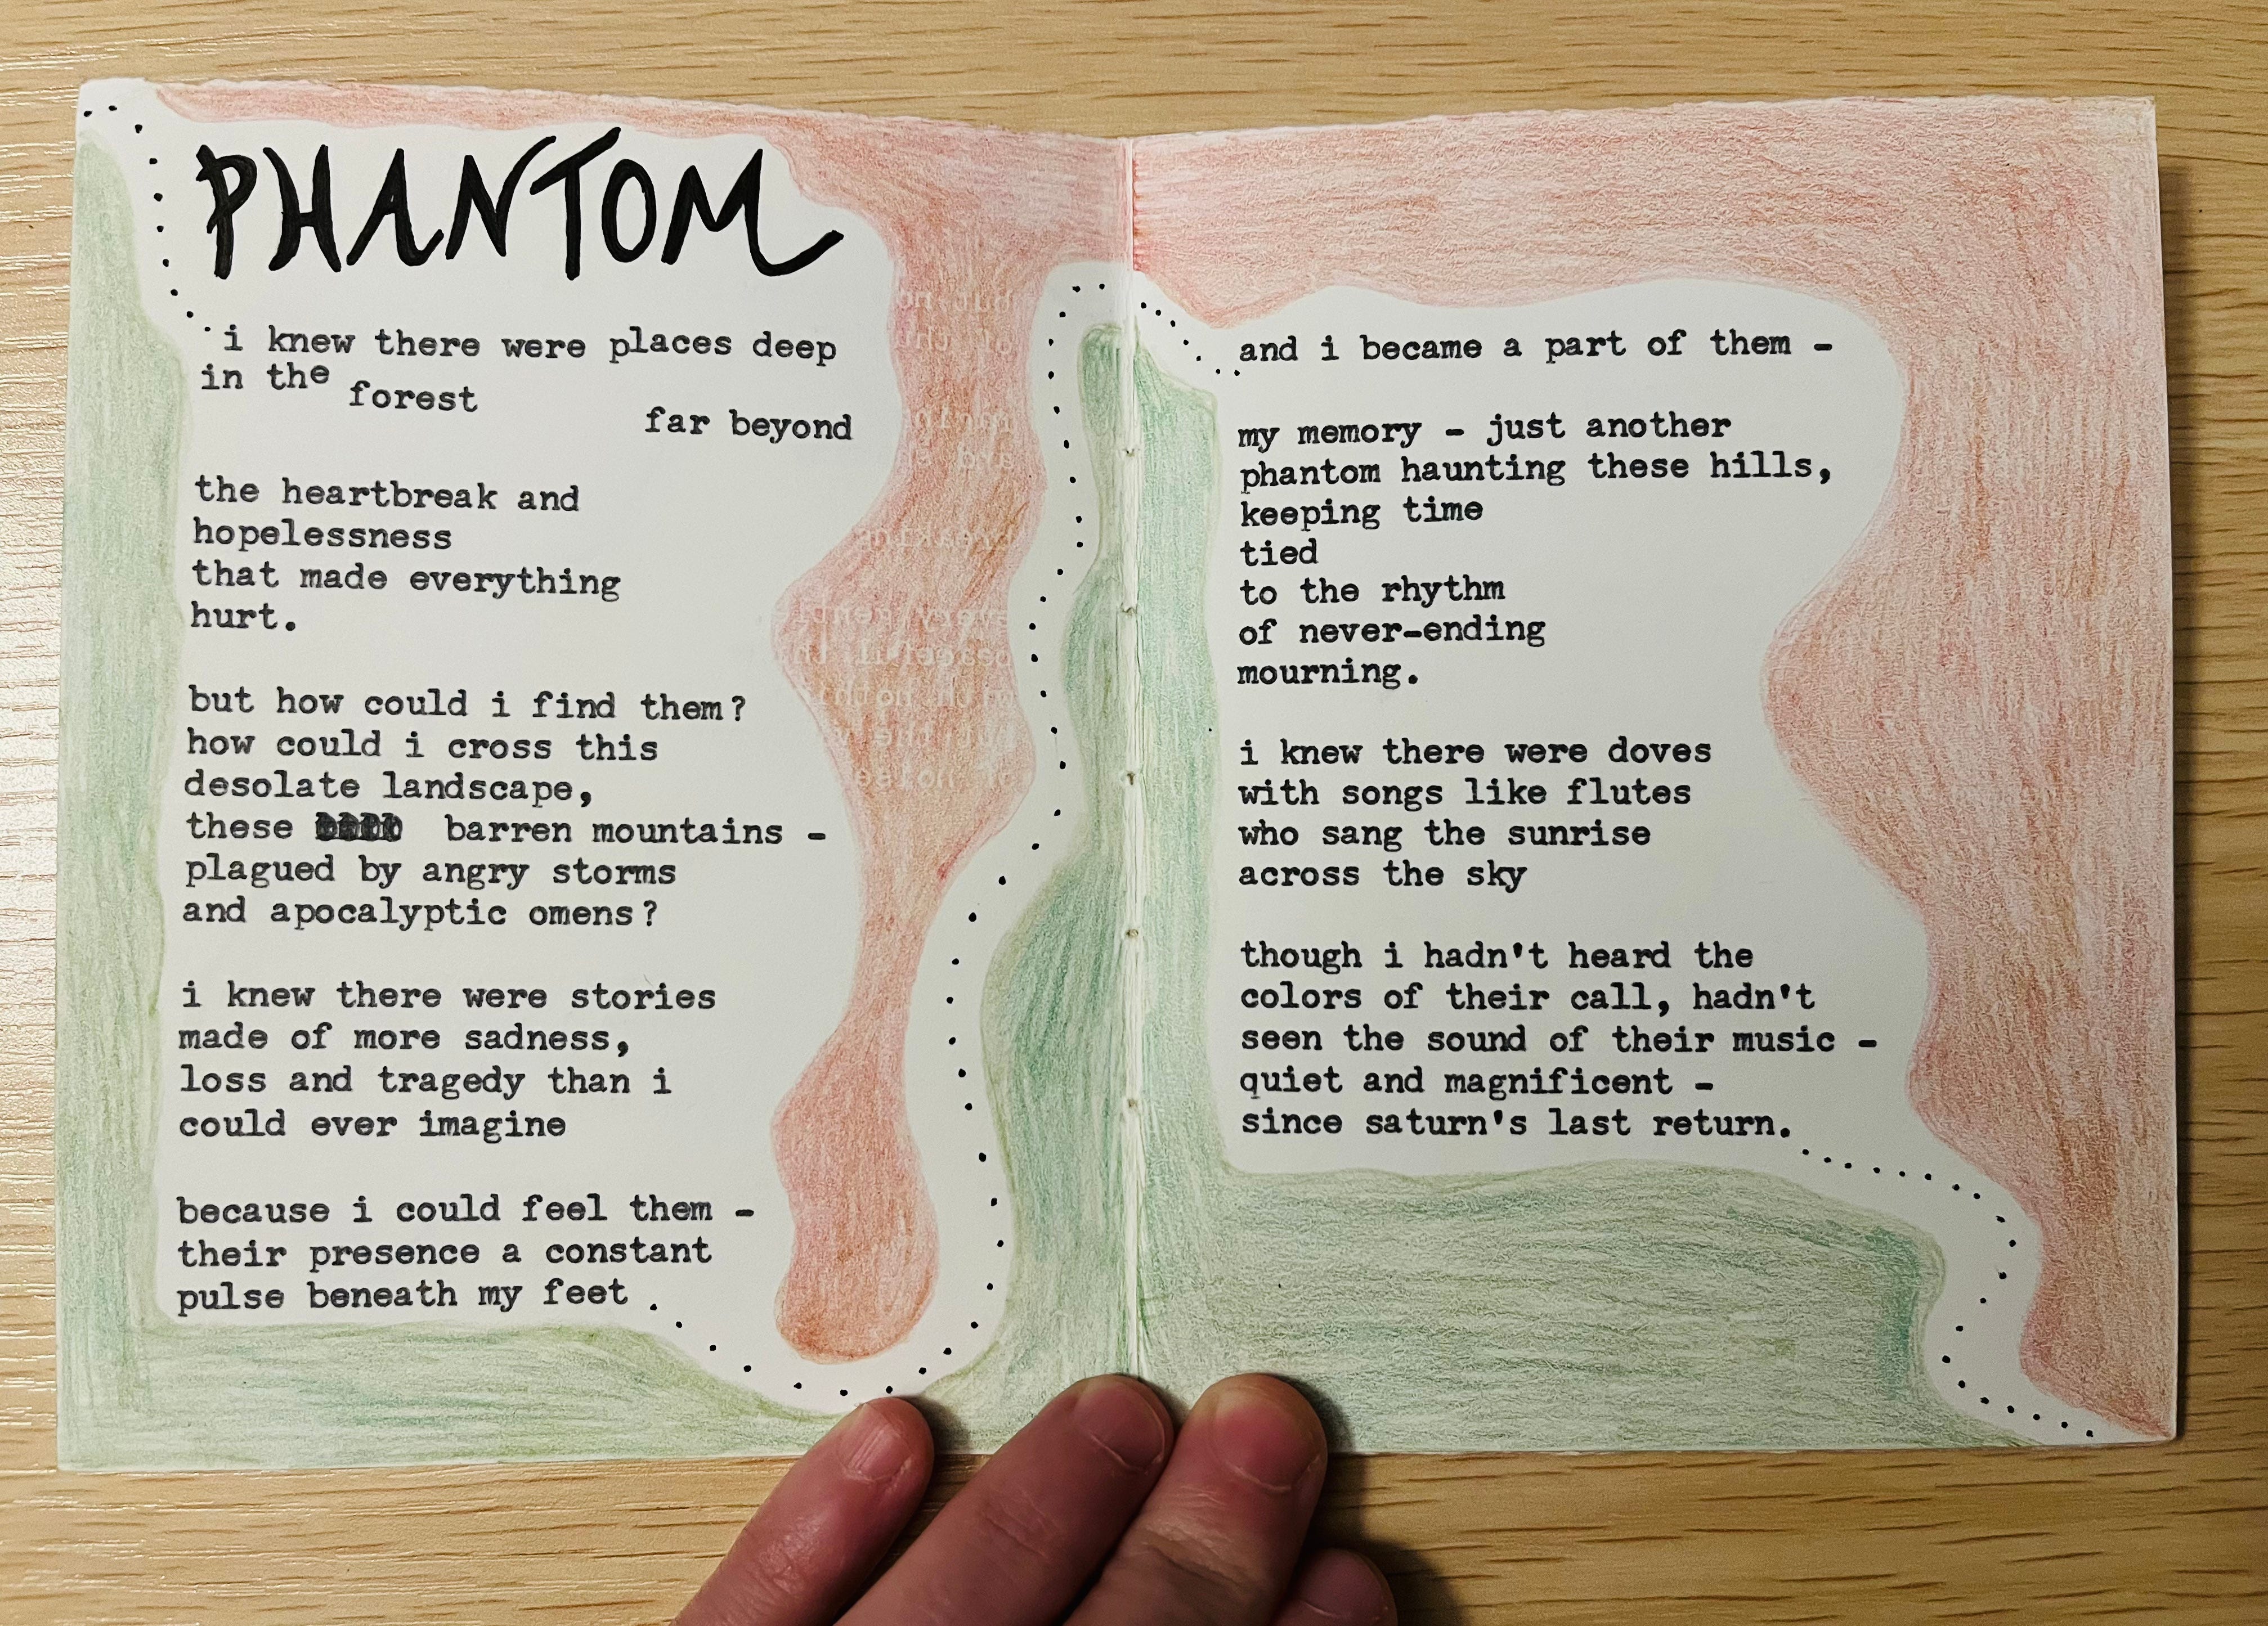 PHANTOM
i knew there were places deep
in the forest
far beyond
the heartbreak and
hopelessness
that made everything
hurt.
but how could i find them?
how could i cross this
desolate landscape,
these barren mountains -
plagued by angry storms
and apocalyptic omens?
i knew there were stories
made of more sadness,
loss and tragedy than i
could ever imagine
because i could feel them -
their presence a constant
pulse beneath my feet .
and i became a part of them -
my memory - just another
phantom haunting these hills,
keeping time
tied
to the rhythm
of never-ending
mourning.
i knew there were doves
with songs like flutes
who sang the sunrise
across the sky
though i hadn't heard the
colors of their call, hadn't
seen the sound of their music -
quiet and magnificent -
since saturn's last return.